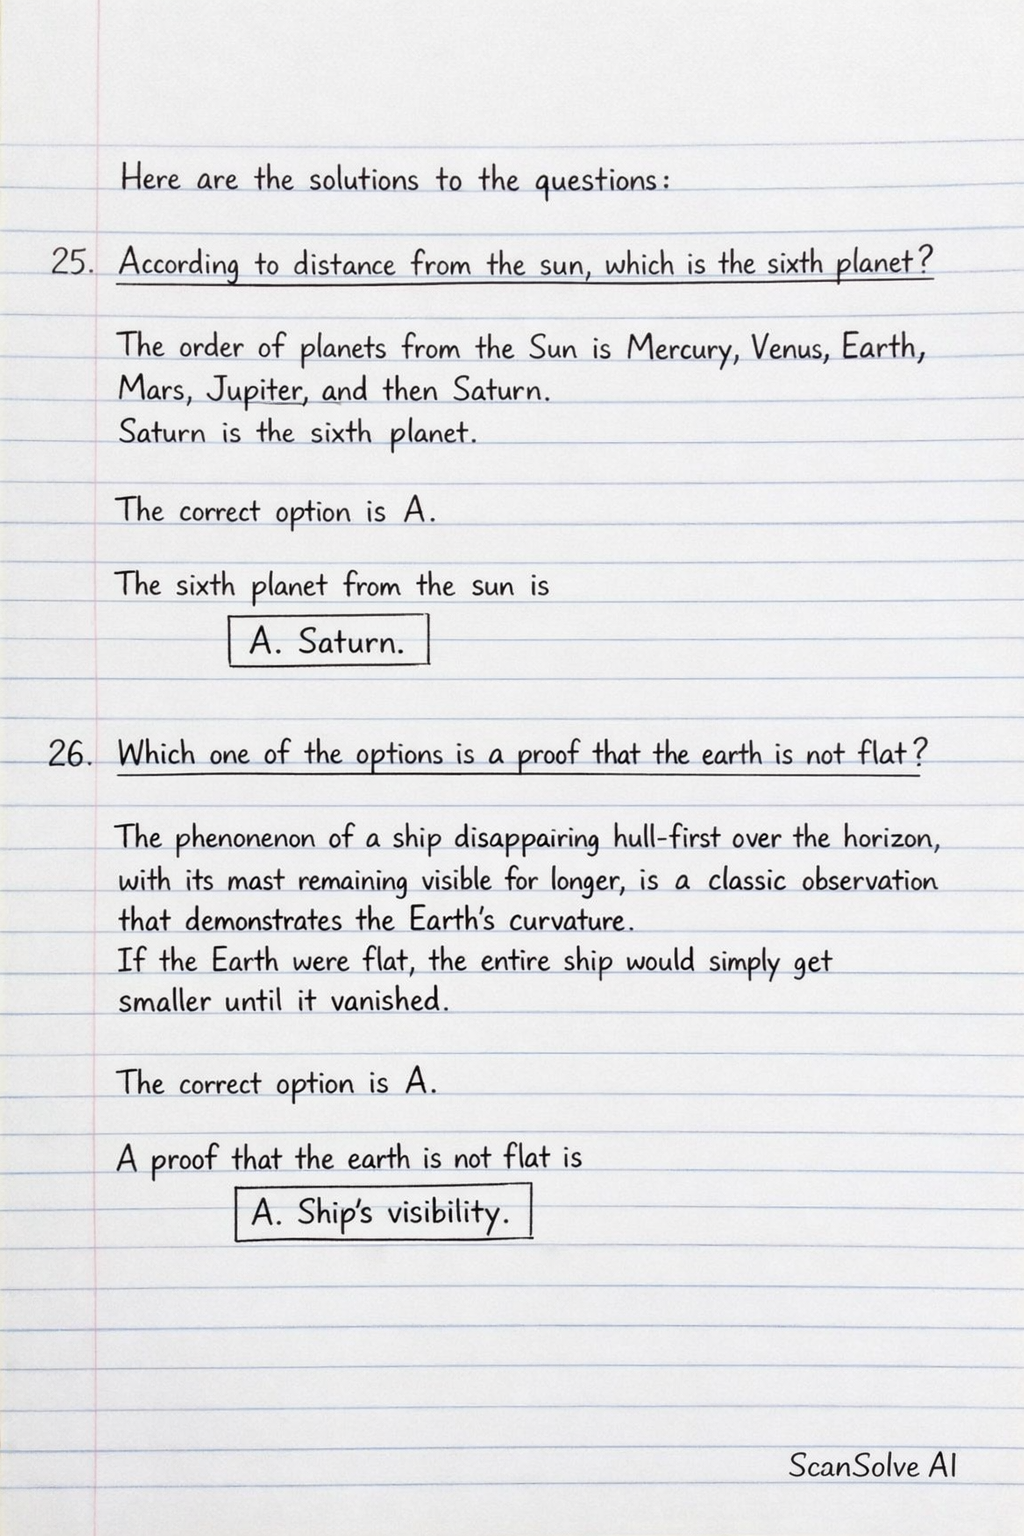 Here are the solutions to the questions:
25. According to distance from the sun, which is the sixth planet?
The order of planets from the Sun is Mercury, Venus, Earth,
Mars, Jupiter, and then Saturn.
Saturn is the sixth planet.
The correct option is A.
The sixth planet from the sun is
A. Saturn.
26. Which one of the options is a proof that the earth is not flat?
The phenonenon of a ship disappairing hull-first over the horizon,
with its mast remaining visible for longer, is a classic observation
that demonstrates the Earth's curvature.
If the Earth were flat, the entire ship would simply get
smaller until it vanished.
The correct option is A.
A proof that the earth is not flat is
A. Ship's visibility.
ScanSolve AI